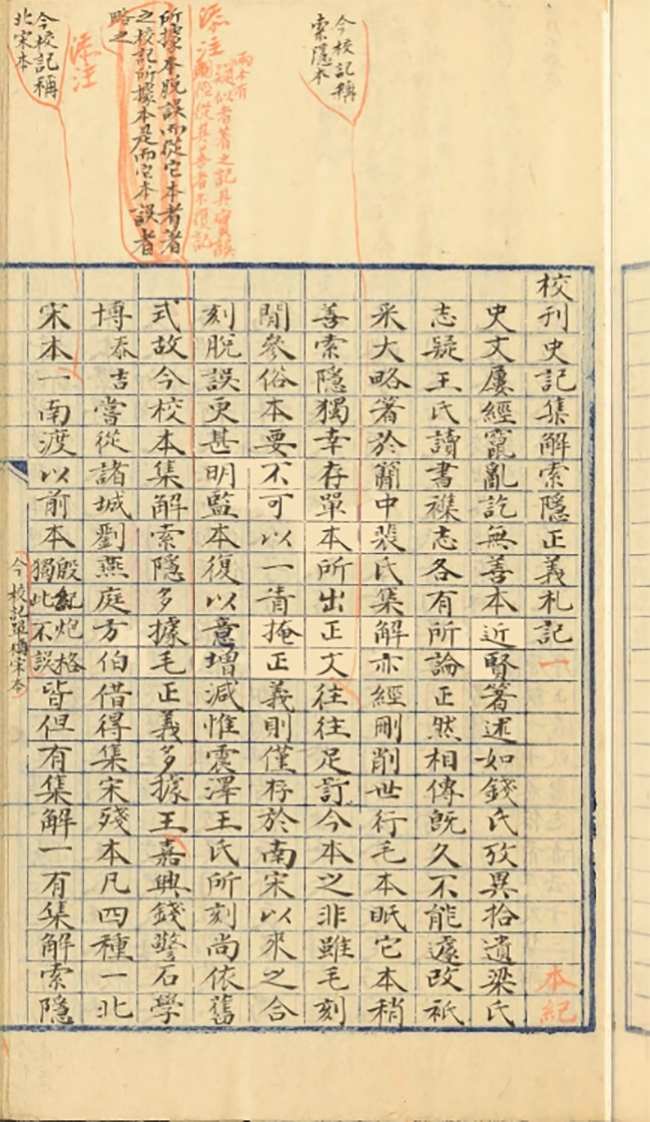 今校記稱
索隱本
兩本有
疑似者著之記其實誤
從其善者不復記
添注
所據本脫誤而從它本者著
之校記所據本是而它本誤者
略之
添注
今校記稱
北宋本
校刊史記集解索隱正義札記一　本紀
史文屢經竄亂訖無善本近賢箸述如錢氏攷異拾遺梁氏
志疑王氏讀書襍志各有所論正然相傳旣久不能遽改祇
采大略箸於簡中裴氏集解亦經刪削世行毛本眂它本稍
善索隱獨幸存單本所出正文往往足訂今本之非雖毛刻
閒參俗本要不可以一眚掩正義則僅存於南宋以來之合
刻脫誤更甚明監本復以意增減惟震澤王氏所刻尚依舊
式故今校本集解索隱多據毛正義多據王嘉興錢警石學
博泰吉嘗從諸城劉燕庭方伯借得集宋殘本凡四種一北
宋本一南渡以前本殷紀炮格獨此不誤皆但有集解一有集解索隱
今校記單稱宋本